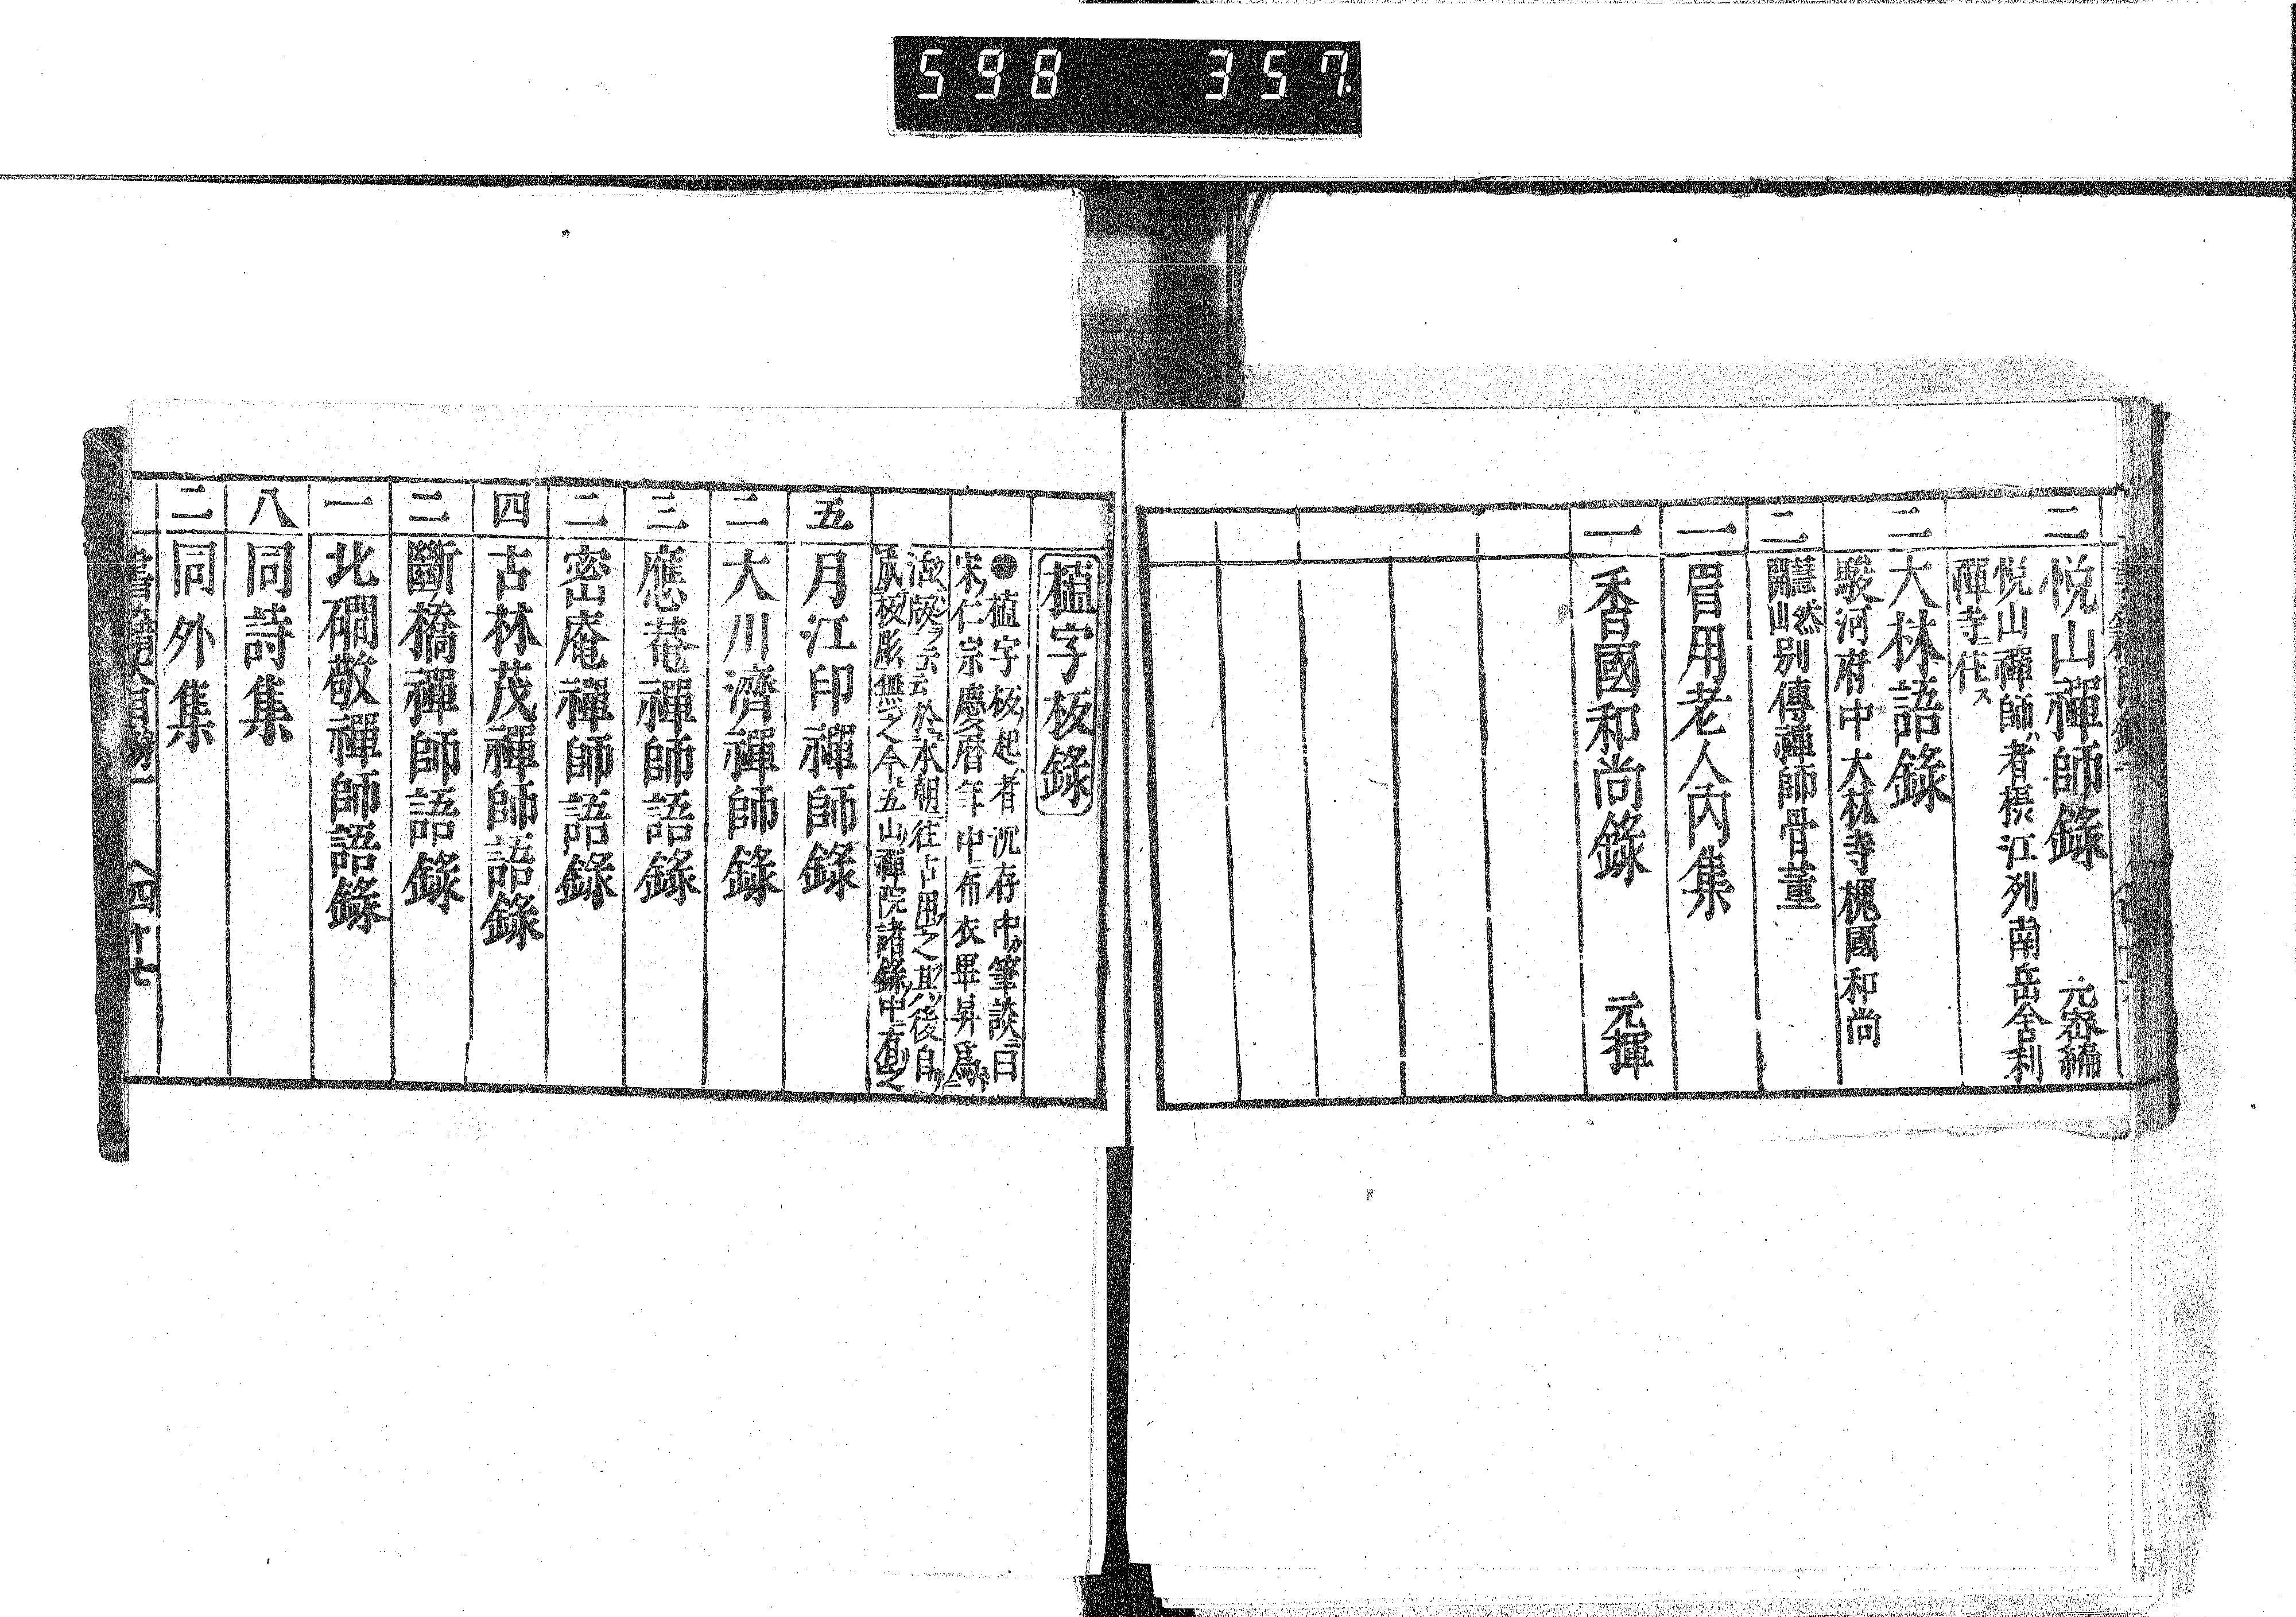 598 357
二 悦山禪師錄 元𡶶編
悦山禪師ハ者摂江列南岳舍利
禪寺ニ住ス
二 大林語錄
駿河府中大林寺槐國和尚
二 開山慧然別傳禪師骨董
一 眉用老人内集
一 香國和尚錄 元揮
植字板錄
●植字板起ハ者沉存中カ筆談ニ曰
宋ノ仁宗慶曆年中布衣畢昇爲
活版ヲ云云於本朝往古用之其後自
成板彫無之今五山禪院諸錄中有之
五 月江印禪師錄
二 大川濟禪師錄
三 應菴禪師語錄
二 密庵禪師語錄
四 古林茂禪師語錄
二 斷橋禪師語錄
一 北磵敬禪師語錄
八 同詩集
二 同外集
書籍大目錄一 四十七